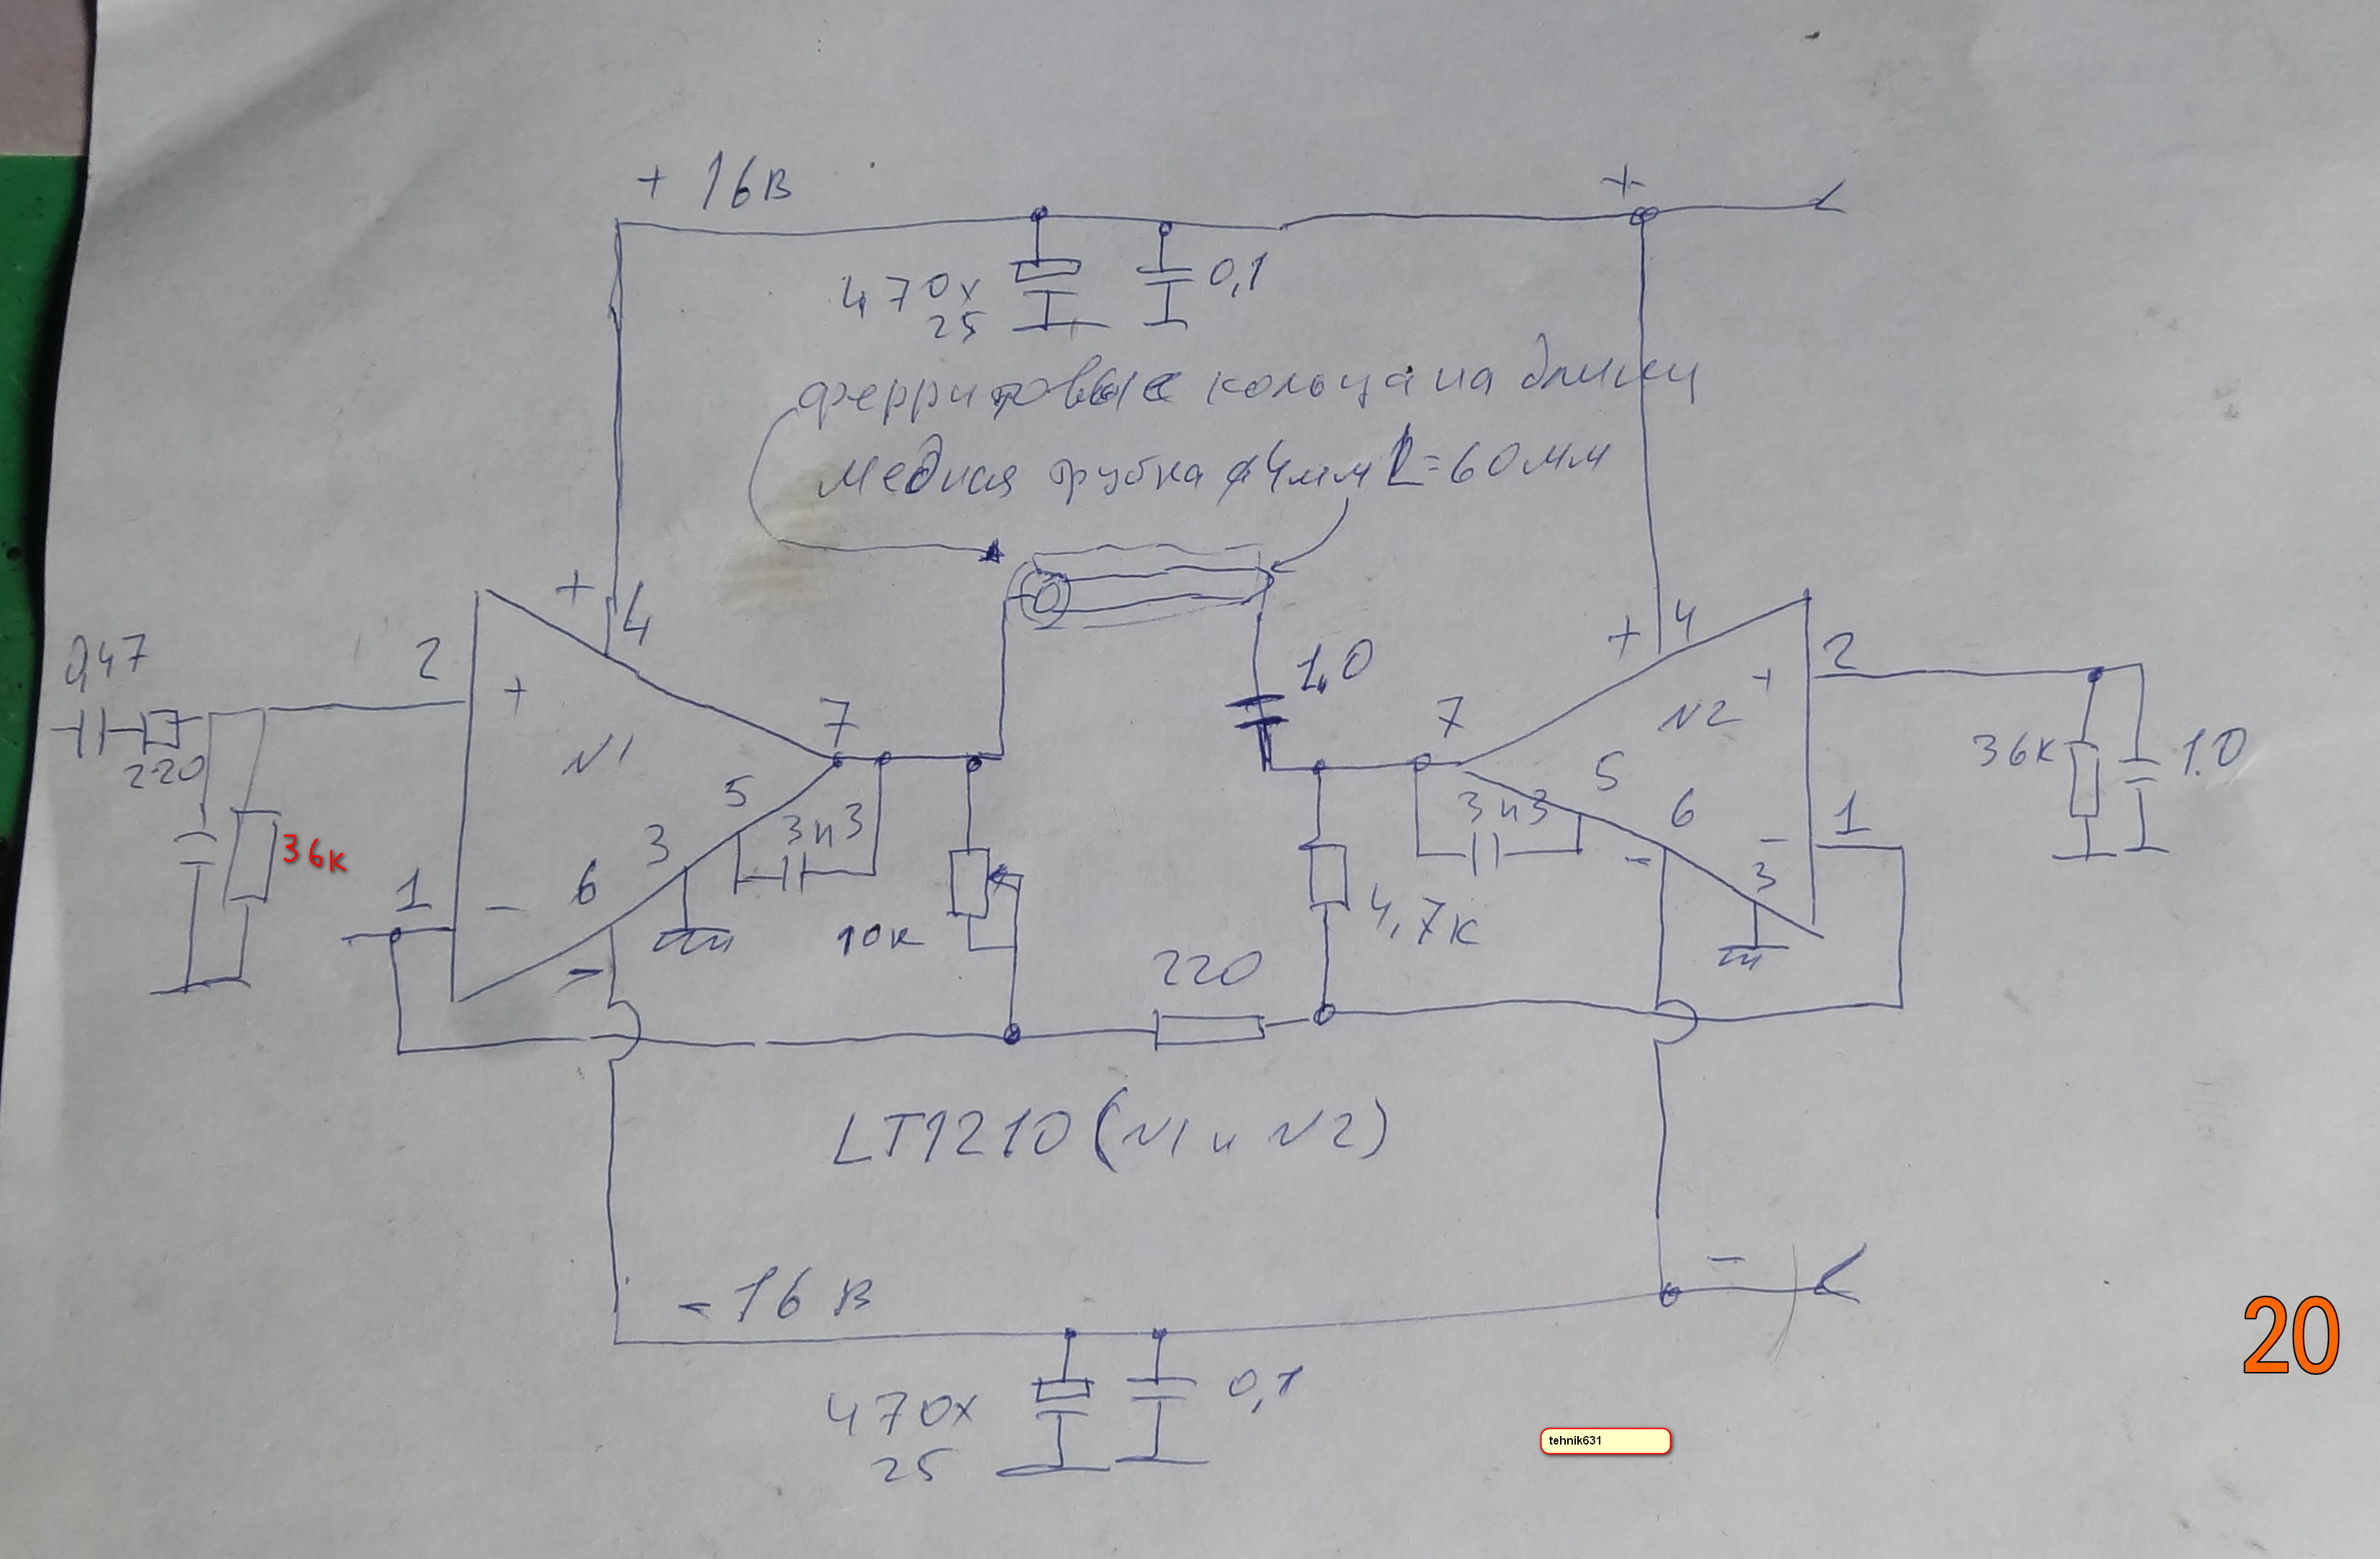 + 16 В
+
470х
25
0,1
ферритовые кольца на длину
медная трубка ⌀4мм L=60мм
+
4
0,47
2
220
+
N1
7
5
3н3
3
6
36к
1
-
-
10к
1,0
+
4
2
+
N2
7
5
3н3
6
-
-
1
3
36к
1.0
4,7к
220
LT1210 (N1 и N2)
- 16 В
-
470х
25
0,1
20
tehnik631